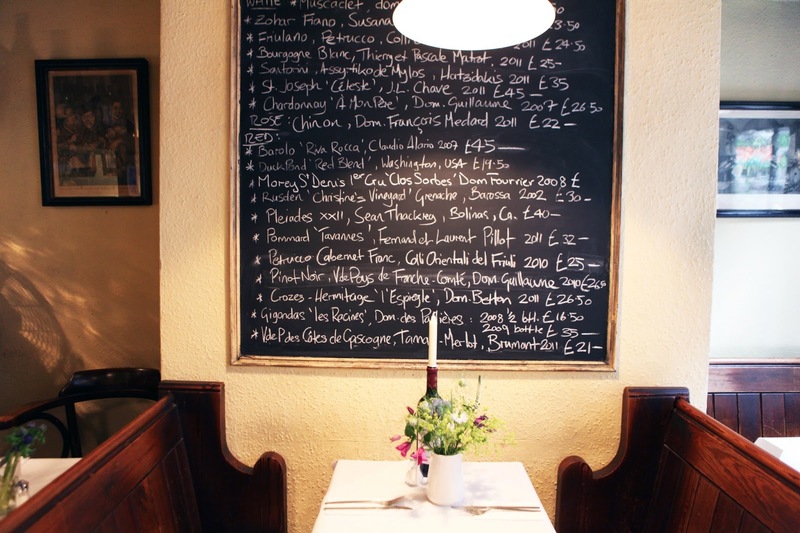 WHITE * Muscadet, dom
* Zohar Fiano, Susana 3.50
* Friulano, Petrucco, Colli £24.50
* Bourgogne Blanc, Thierry et Pascale Matrot, 2011 £25—
* Santorini, Assyrtiko de Mylos, Hatzidakis 2011 £35
* St. Joseph 'Céleste', J.L. Chave 2011 £45—
* Chardonnay 'A Mon Père', Dom. Guillaume 2007 £26.50
ROSÉ: Chinon, Dom. François Medard 2011 £22—
RED:
* Barolo 'Riva Rocca', Claudio Alario 2007 £45—
* Duck Pond 'Red Blend', Washington, USA £19.50
* Morey St Denis 1er Cru 'Clos Sorbes' Dom Fourrier 2008 £
* Rusden 'Christine's Vineyard' Grenache, Barossa 2002 £30—
* Pleiades XXII, Sean Thackrey, Bolinas, Ca. £40—
* Pommard 'Tavannes', Fernand et Laurent Pillot 2011 £32—
* Petrucco Cabernet Franc, Colli Orientali del Friuli 2010 £25—
* Pinot Noir, V de Pays de Franche-Comté, Dom. Guillaume 2010 £26.5
* Crozes-Hermitage 'l'Espiegle', Dom. Betton 2011 £26.50
* Gigondas 'les Racines', Dom. des : 2008 ½ btl. £16.50
2009 bottle £35—
* V de P. des Côtes de Gascogne, Tannat-Merlot, Brumont 2011 £21—